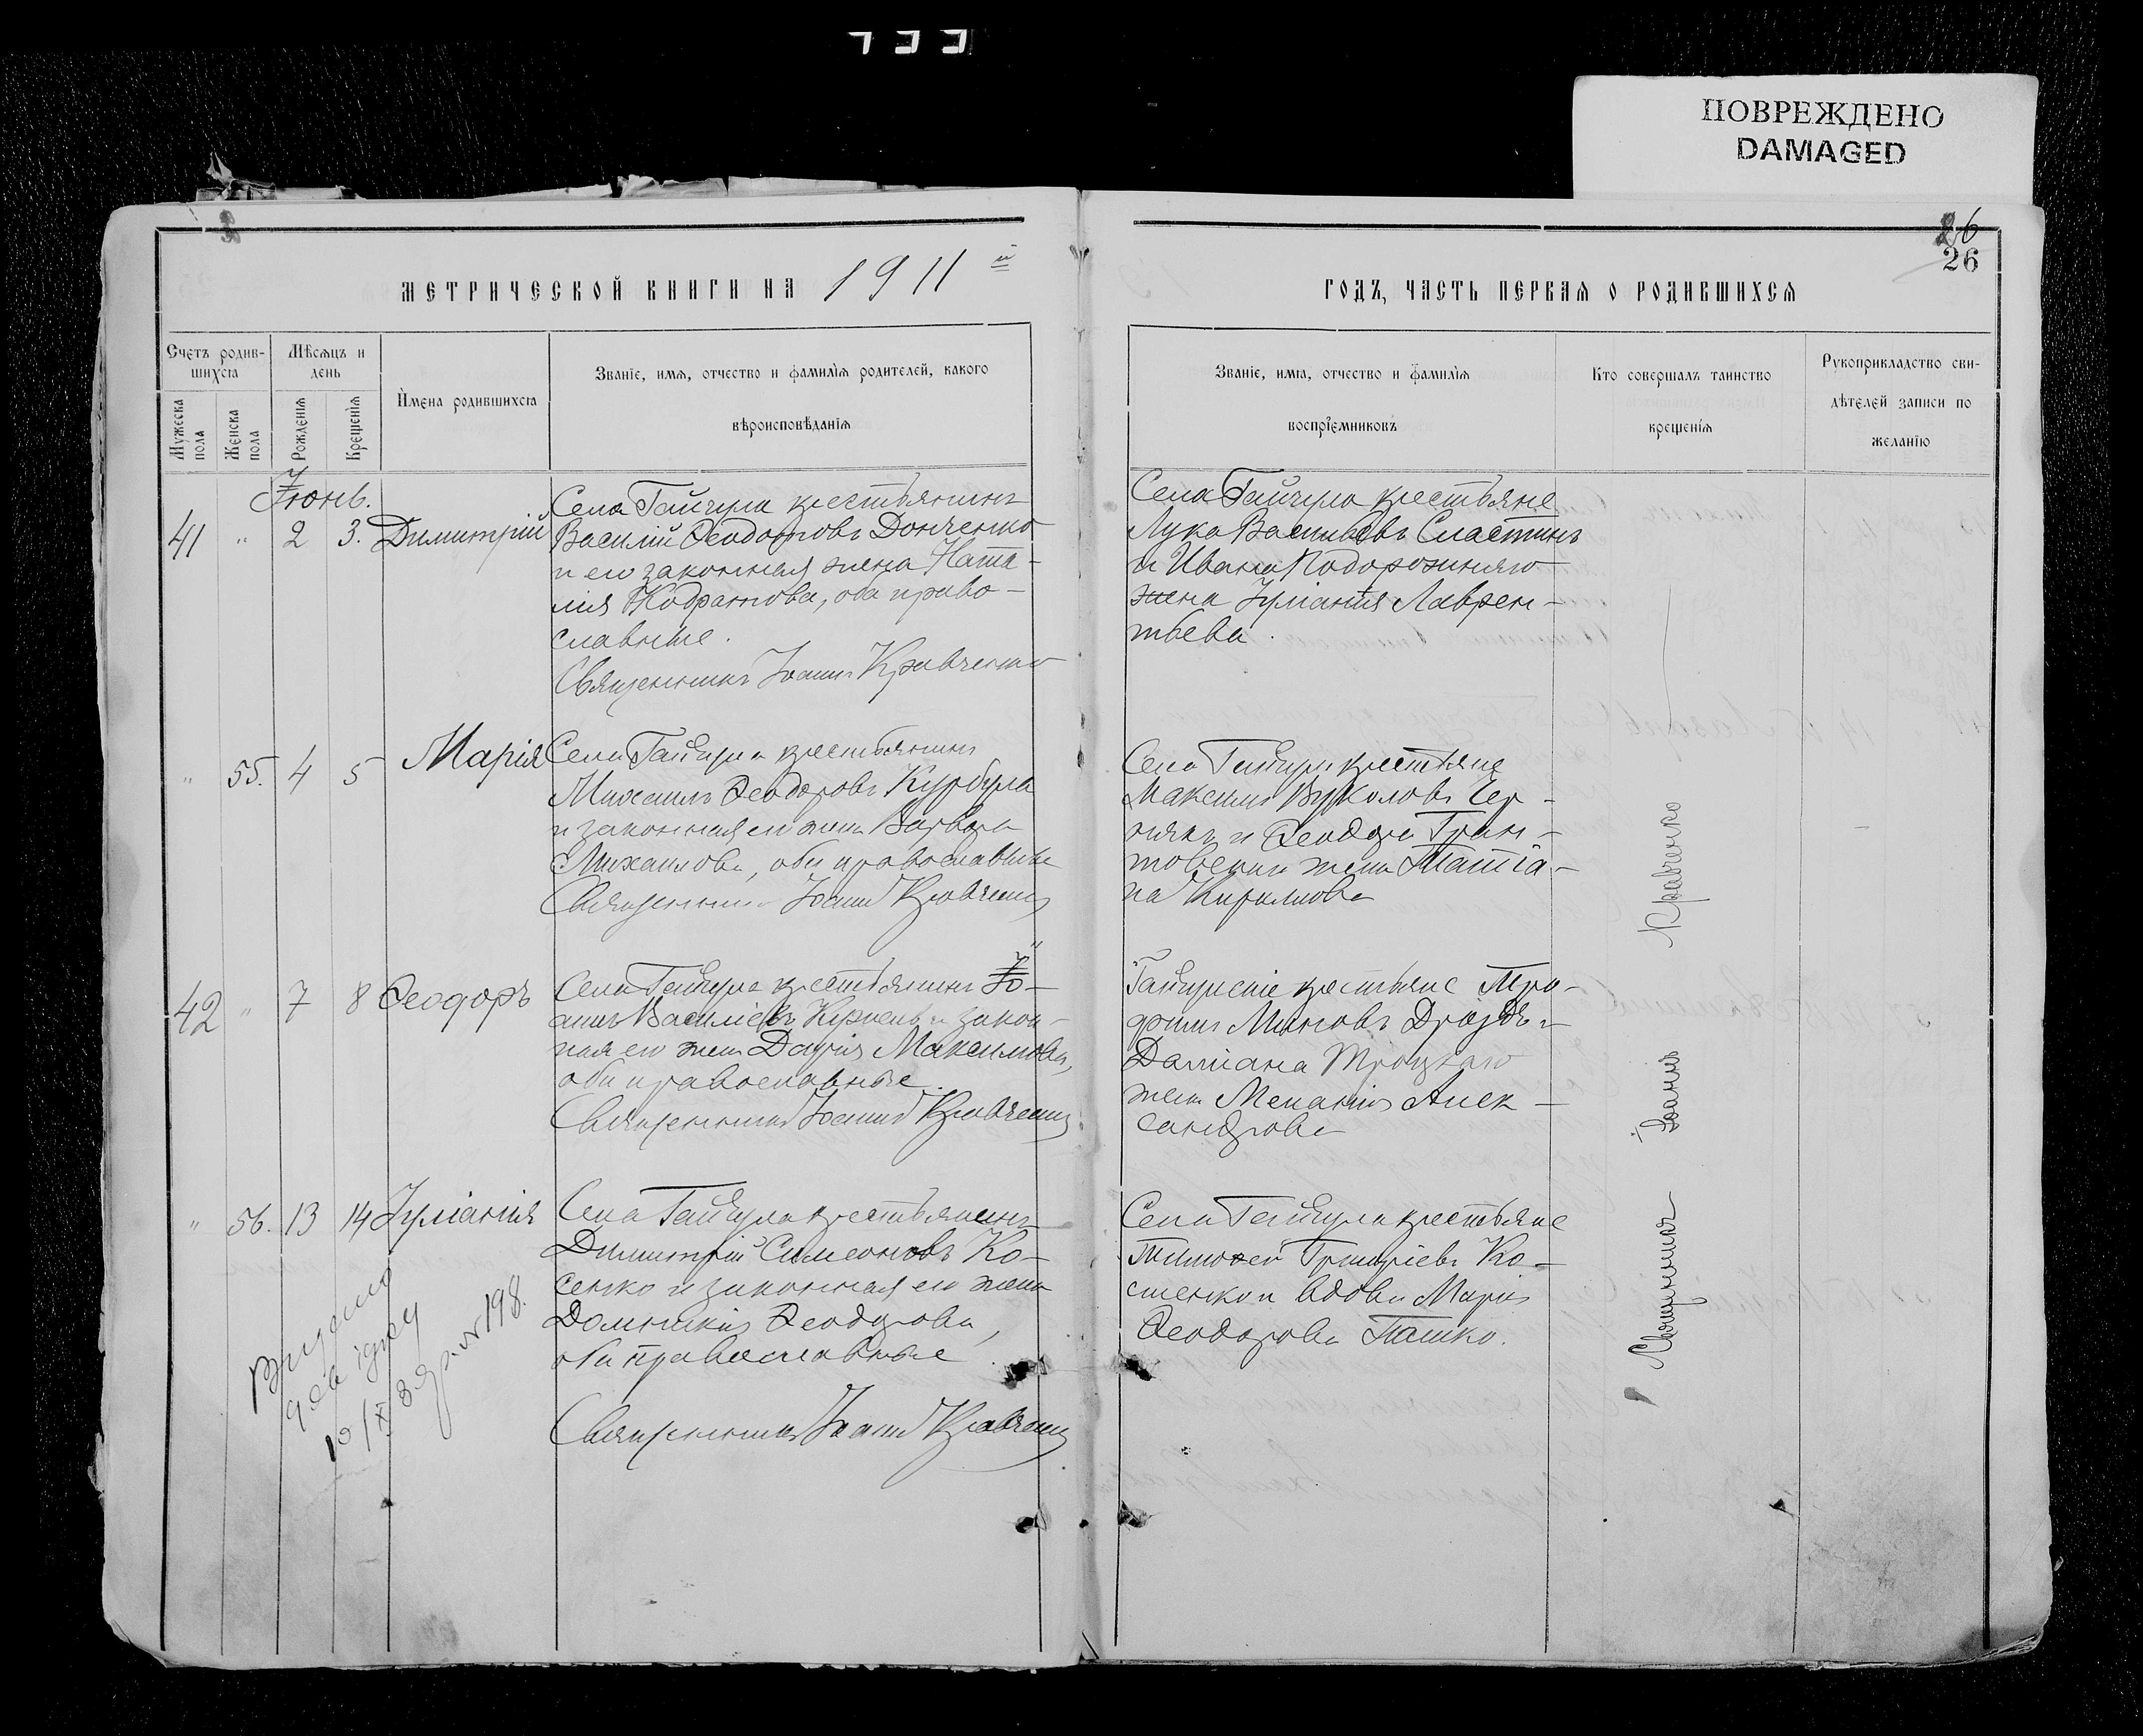 ПОВРЕЖДЕНО
DAMAGED
26
26
МЕТРИЧЕСКОЙ КНИГИ НА 1911 й
ГОДЪ, ЧАСТЬ ПЕРВАЯ О РОДИВШИХСЯ
Счетъ родив-
шихся
Мужеска пола
Женска пола
Мѣсяцъ и
день
Рожденія
Крещенія
Имена родившихся
Званіе, имя, отчество и фамилія родителей, какого
вѣроисповѣданія
Званіе, имя, отчество и фамилія
воспріемниковъ
Кто совершалъ таинство
крещенія
Рукоприкладство сви-
дѣтелей записи по
желанію
Іюнь.
41 " 2 3. Димитрій
Села Гайчула крестьянинъ
Василій Ѳеодотовъ Донченко
и его законная жена Ната-
лія Кодратова, оба право-
славные.
Священникъ Іоаннъ Кравченко
Села Гайчула крестьяне
Лука Васильевъ Сластинъ
и Ивана Подорожняго
жена Іуліанія Лаврен-
тьева.
" 55. 4 5 Марія
Села Гайчула крестьянинъ
Михаилъ Ѳеодоровъ Курбула
и законная его жена Варвара
Михаилова, оба православные
Священникъ Іоаннъ Кравченко
Села Гайчула крестьяне
Максимъ Вуколовъ Чер-
някъ и Ѳеодора Гран-
товскаго жена Татіа-
на Кириллова
42 " 7 8 Ѳеодоръ
Села Гайчула крестьянинъ Іо-
аннъ Василіевъ и закон-
ная его жена Дарія Максимова,
оба православные.
Священникъ Іоаннъ Кравченко
Гайчулскіе крестьяне Тро-
фимъ Миновъ Дроздъ и
Даміана Троцкаго
жена Меланія Алек-
сандрова
" 56. 13 14 Іуліанія
Села Гайчула крестьянинъ
Димитрій Симеоновъ Ко-
сенко и законная его жена
Домникія Ѳеодорова,
оба православные
Священникъ Іоаннъ Кравченко
Села Гайчула крестьяне
Тимоѳей Григоріевъ Ко-
стенко и вдова Марія
Ѳеодорова Ташко.
Священникъ Іоаннъ Кравченко
Видано
198.